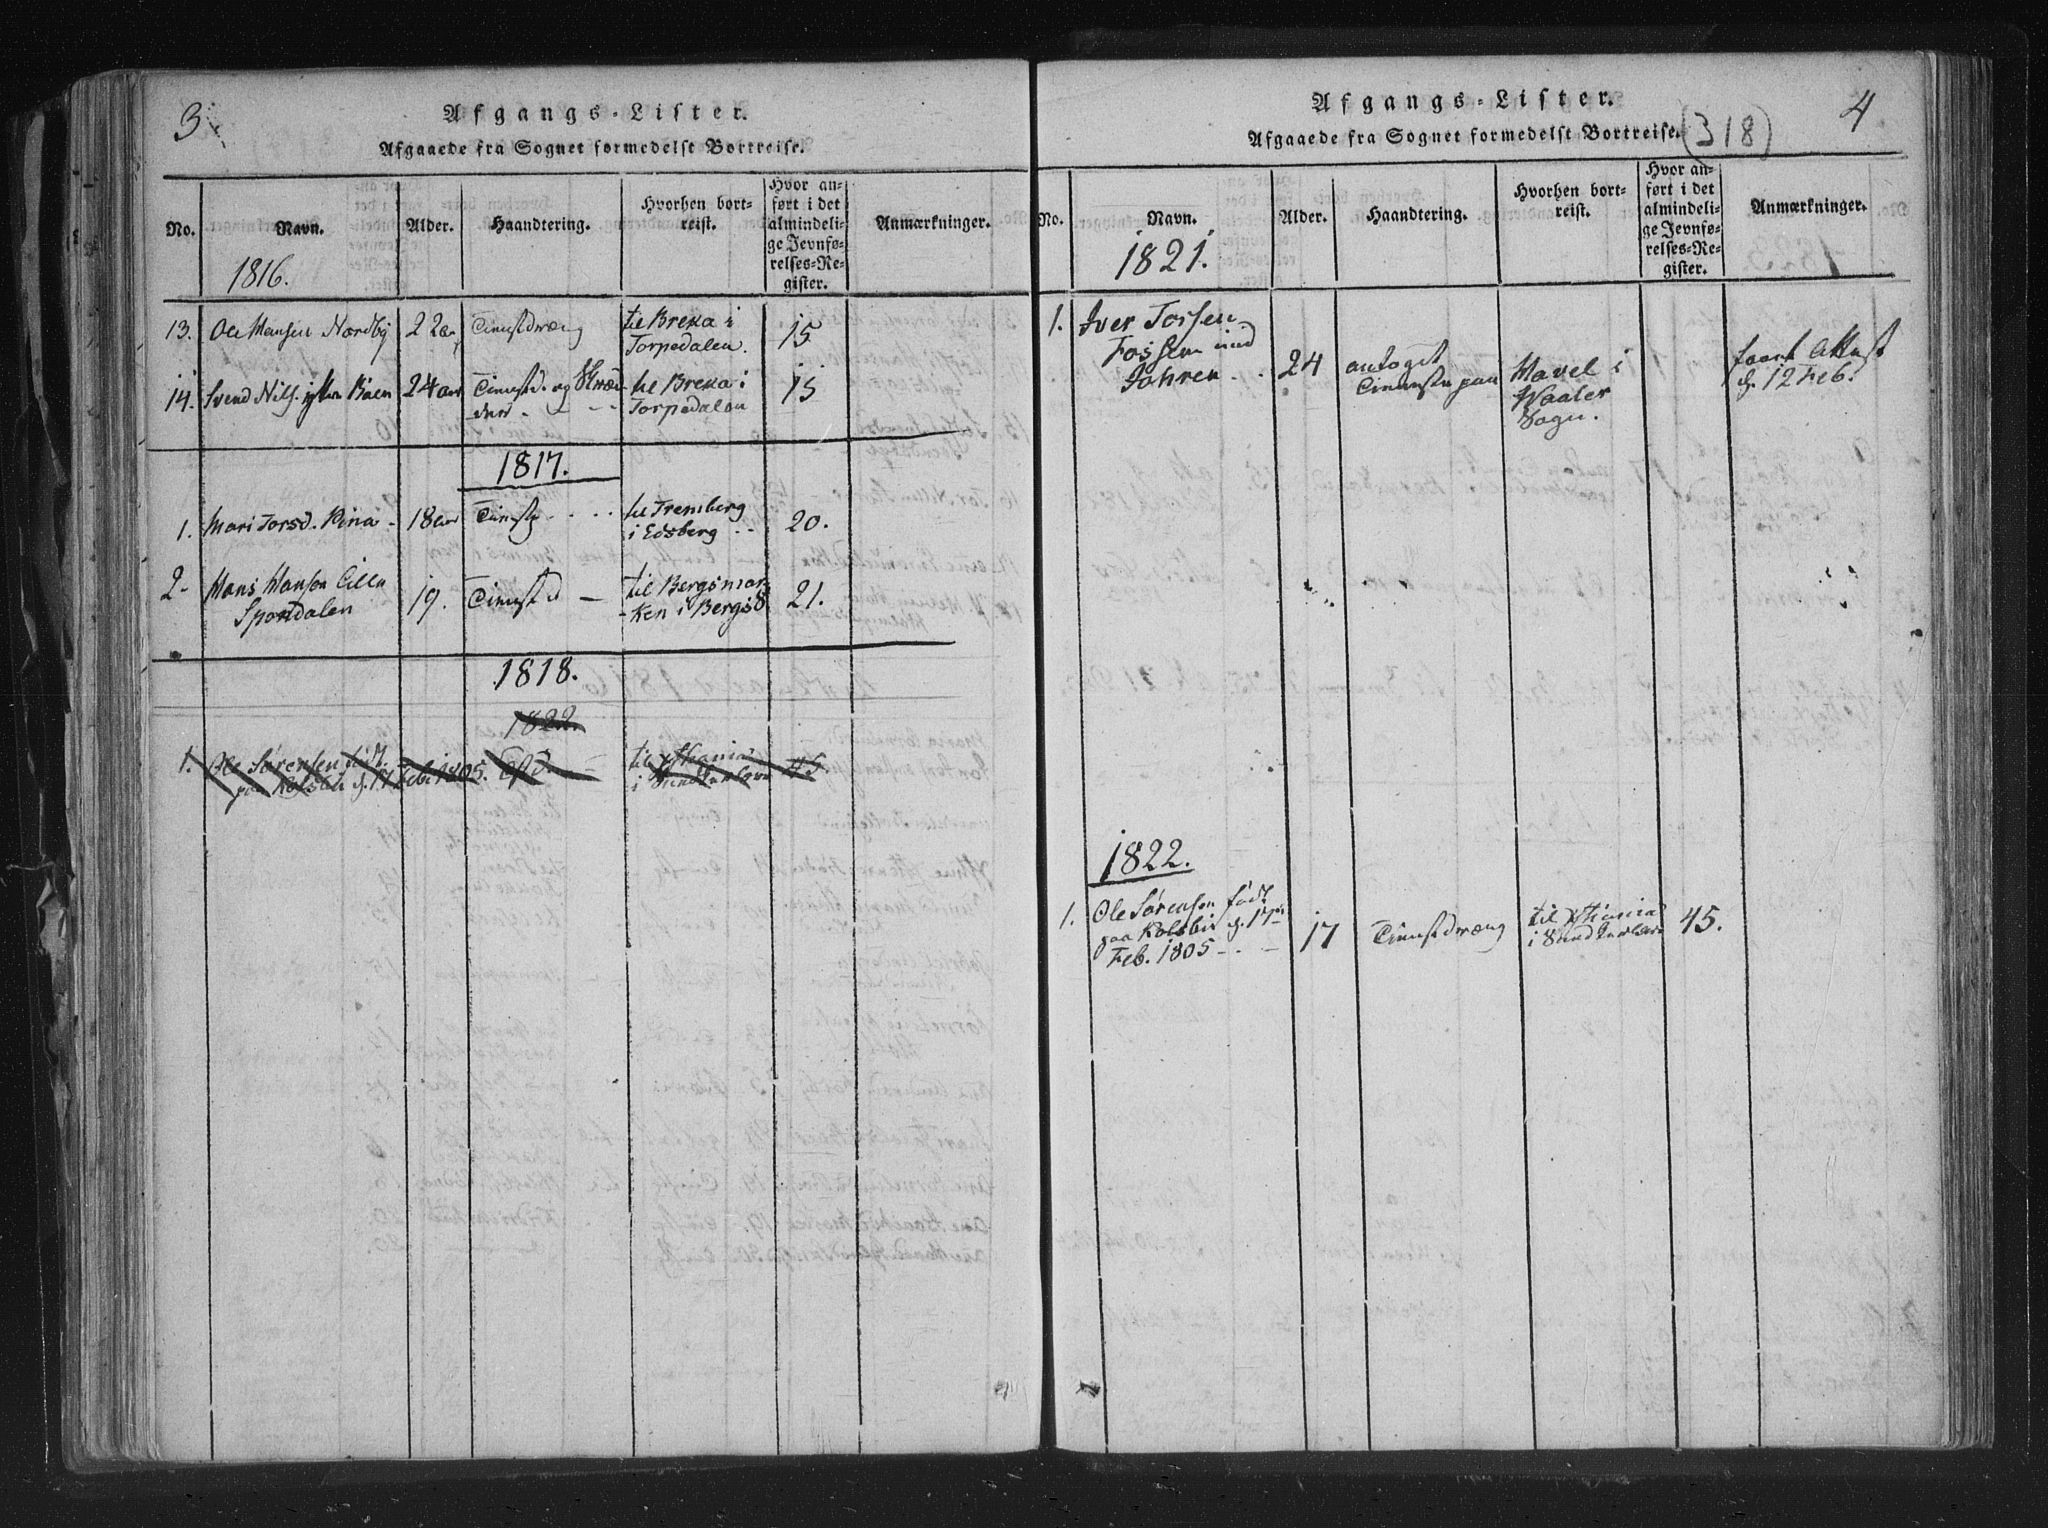 3.
Afgangs-Lister.
Afgaaede fra Sognet formedelst Bortreise.
No. Navn. Alder. Haandtering. Hvorhen bort-
reist. Hvor an-
ført i det
almindeli-
ge Jevnfø-
relses-Re-
gister. Anmærkninger.
1816.
13. Ole Hansen Nordby 22 aar til Breka i
Torpedalen. 15
14. Svend Nils. 24 aar Tienestd. og til Breka i
Torpedalen 15
1817.
1. Mari Torsd. 18 aar Tieneste til Fremberg
i Edsberg 20.
2. Hans Hansen
Spondalen 19. Tienestd til Bergsmar-
ken i Bergs 21.
1818.
1822.
1. Ole Sørensen født
paa Kolsbii d. 17 Feb. 1805. til Xthania
i 45
Afgangs-Lister.
4
Afgaaede fra Sognet formedelst Bortreise.
(318)
No. Navn. Alder. Haandtering. Hvorhen bort-
reist. Hvor an-
ført i det
almindeli-
ge Jevnfø-
relses-Re-
gister. Anmærkninger.
1821.
1. Iver Torsen
Fossen
24 antaget
Tieneste paa Havel i
Waaler
Sogn. faaet Attest
d. 12 Feb.
1822.
1. Ole Sørensen født
paa Kolsbii d. 17de
Feb. 1805 - 17 Tienestdræng til Xthania
i 45.